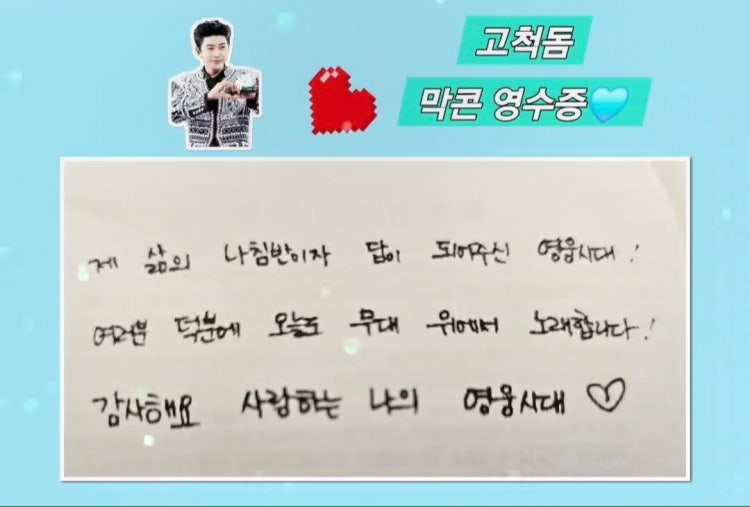 고척돔
막콘 영수증
제 삶의 나침반이자 답이 되어주신 영웅시대!
여러분 덕분에 오늘도 무대 위에서 노래합니다!
감사해요 사랑하는 나의 영웅시대♡